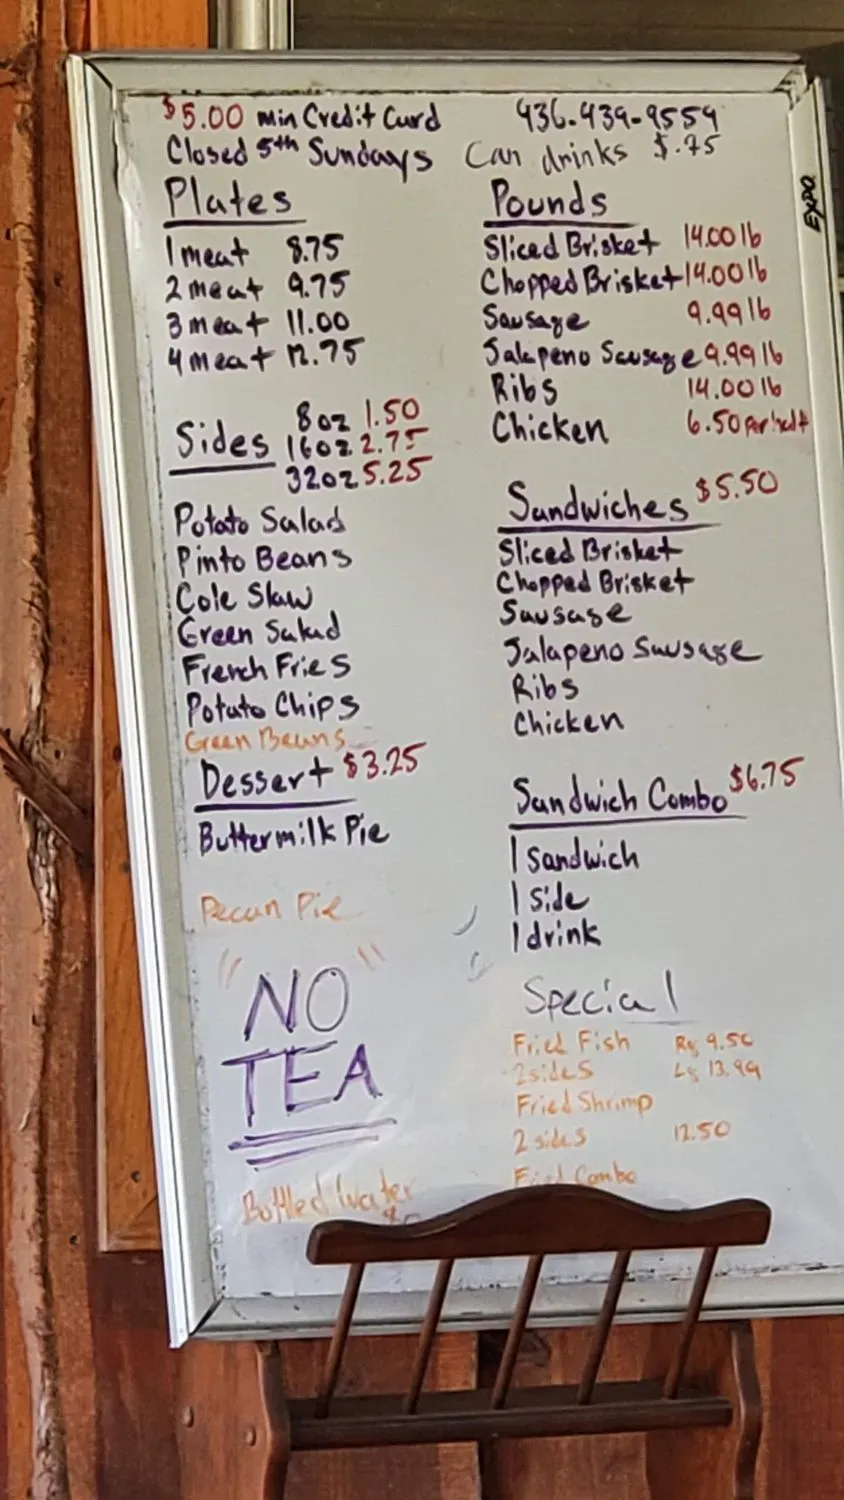 $5.00 min Credit Card
936-439-9559
Closed 5th Sundays
Can drinks $.75
EXPO
Plates
1 meat 8.75
2 meat 9.75
3 meat 11.00
4 meat 12.75
Sides
8 oz 1.50
16 oz 2.75
32 oz 5.25
Potato Salad
Pinto Beans
Cole Slaw
Green Salad
French Fries
Potato Chips
Green Beans
Dessert $3.25
Buttermilk Pie
Pecan Pie
"NO
TEA"
Bottled Water
Pounds
Sliced Brisket 14.00 lb
Chopped Brisket 14.00 lb
Sausage 9.99 lb
Jalapeno Sausage 9.99 lb
Ribs 14.00 lb
Chicken 6.50 per half
Sandwiches $5.50
Sliced Brisket
Chopped Brisket
Sausage
Jalapeno Sausage
Ribs
Chicken
Sandwich Combo $6.75
1 Sandwich
1 Side
1 drink
Special
Fried Fish Rg 9.50
2 sides Lg 13.99
Fried Shrimp
2 sides 12.50
Fried Combo